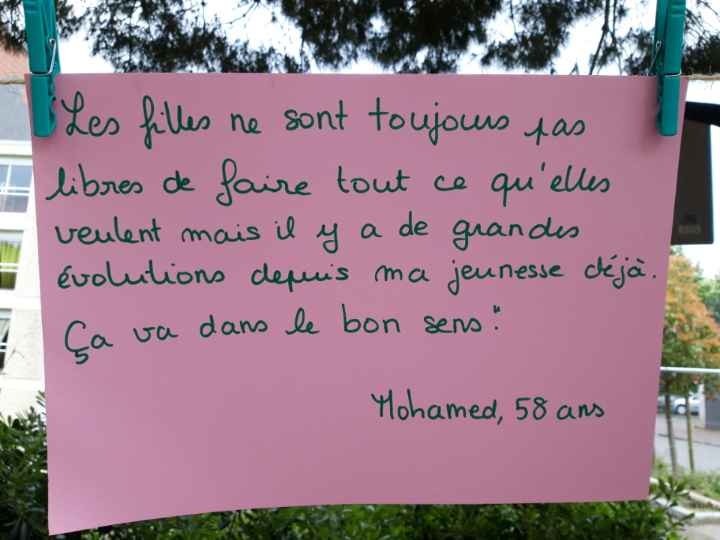 "Les filles ne sont toujours pas
libres de faire tout ce qu'elles
veulent mais il y a de grandes
évolutions depuis ma jeunesse déjà.
Ça va dans le bon sens."
Mohamed, 58 ans